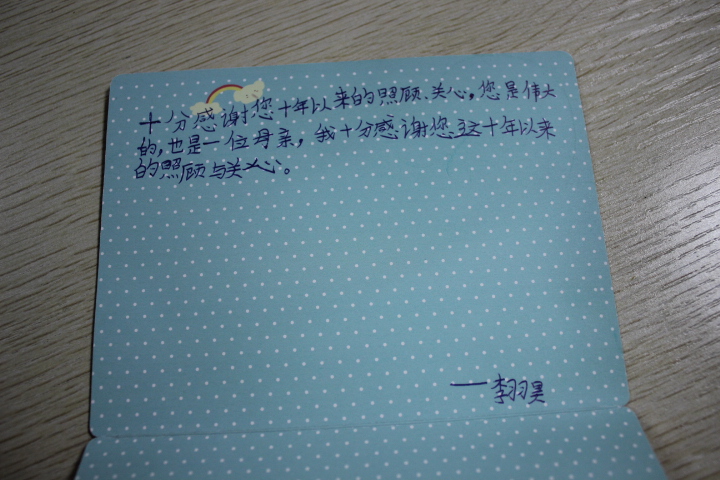 十分感谢您十年以来的照顾、关心，您是伟大
的，也是一位母亲，我十分感谢您这十年以来
的照顾与关心。
——李羽昊